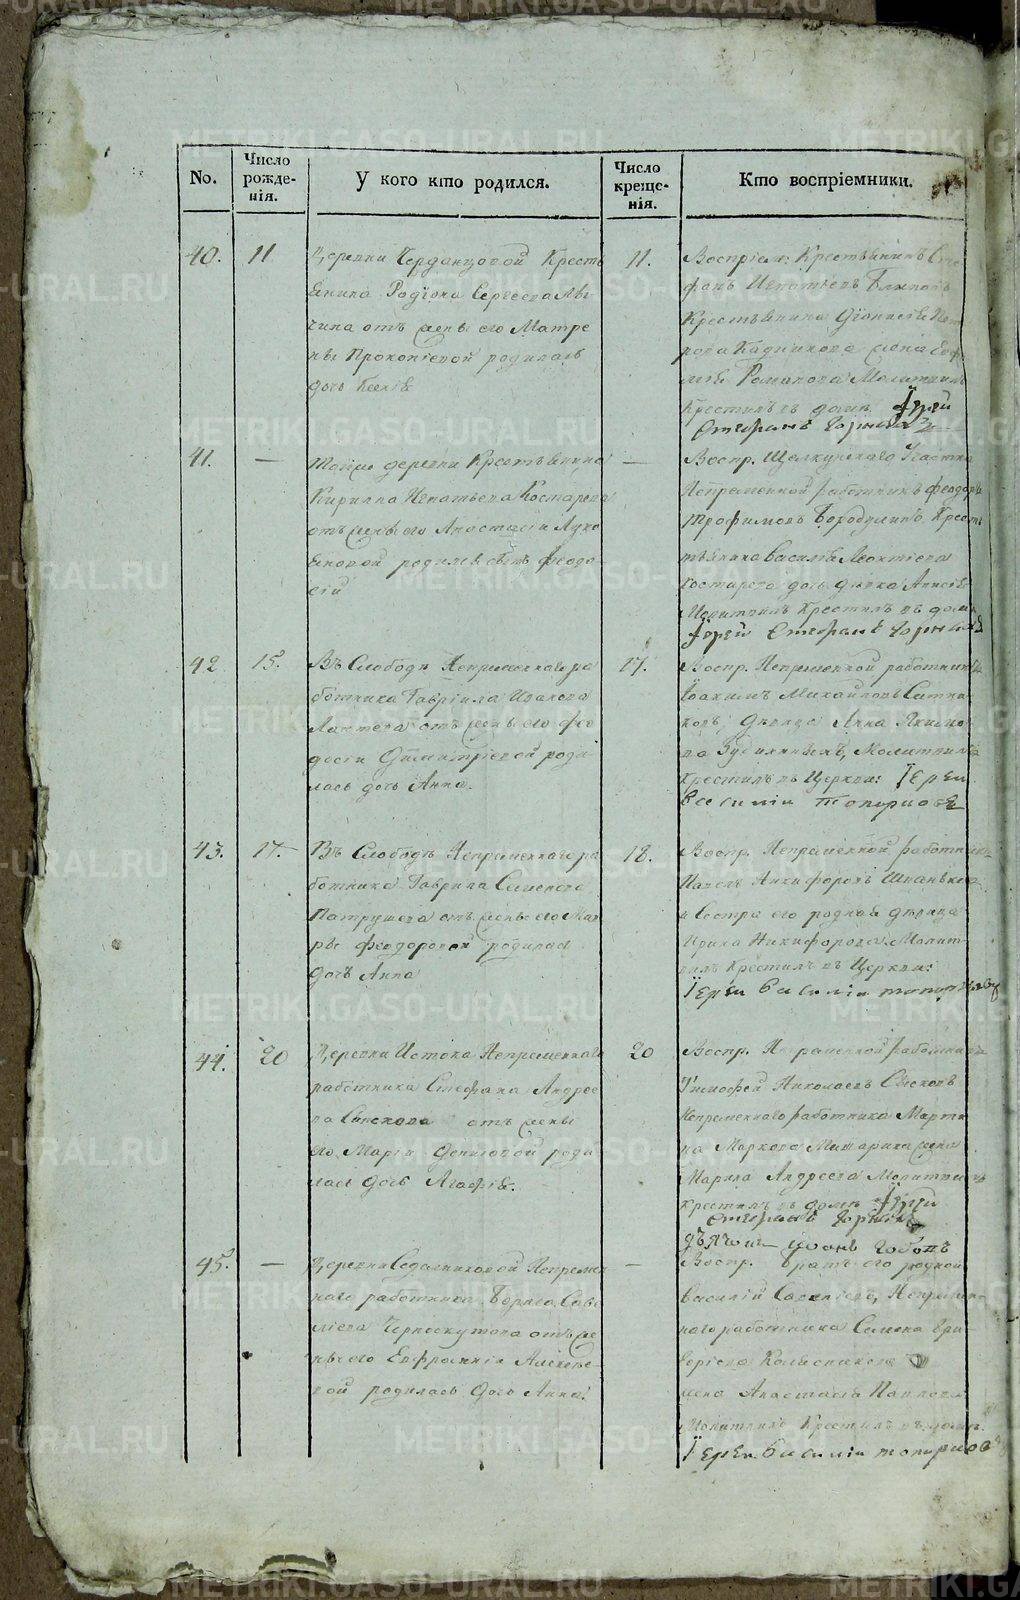 No.
Число рожде-нія.
У кого кто родился.
Число креще-нія.
Кто воспріемники.
40.
11
Деревни Черданцовой Кресть
янина Родіона Сергеева
чина отъ жены его Матре
ны Прокопіевой родилась
дочь
11.
Воспріем: Крестьянинъ Сте
фанъ Игнатьевъ
Крестьянина Діонисія Пет
рова Кадникова жена
Романова Молитвилъ
Крестилъ въ домѣ Іерей
Стефанъ
41.
—
Тойже деревни Крестьянина
Кирилла Игнатьева Костарева
отъ жены его Анастасіи Лукі
яновой родился сынъ Феодо
сій
—
Воспр. Щелкунскаго
Непременной работникъ Феодоръ
Трофимовъ Бородулинъ, Крест
тьянина Василья Леонтіева
Костарева дочь дѣвка Анисія
Молитвилъ Крестилъ въ домѣ
Іерей Стефанъ
42
15.
Въ Слободѣ Непременнаго ра
ботника Гавріила Иванова
Лаптева отъ жены его Фео
досіи Димитріевой роди
лась дочь Анна.
17.
Воспр. Непременной работникъ
Іоакимъ Михайловъ Ситни
ковъ, дѣвица Анна Якимо
ва Молитвилъ
Крестилъ въ Церкви: Іерей
Василий Топорковъ
43.
17.
Въ Слободѣ Непременнаго ра
ботника Гаврила Семенова
Патрушева отъ жены его Мав
ры Феодоровой родилась
дочь Анна
18.
Воспр. Непременной работникъ
Павелъ Никифоровъ
и Сестра его родная дѣвица
Ирина Никифорова. Молит-
вилъ Крестилъ въ Церкви:
Іерей Василій Топорковъ
44.
20
Деревни Истока Непременнаго
работника Стефана Андрее
ва Сыскова отъ жены
его Маріи Денисовой роди
лась дочь Агафія.
20
Воспр. Непременной работникъ
Тимофей Николаевъ Сысковъ
Непременнаго работника Марти
на Маркова жена
Марина Андреева Молитвилъ
Крестилъ въ домѣ Іерей
Стефанъ
45.
—
Деревни Седельниковой Непремен
наго работника Бориса Саве
ліева Черноскутова отъ же
ны его Евфросиніи Алексѣе
вой родилась дочь Анна.
—
Воспр. братъ его родной
Василій Савеліевъ, Непремен-
наго работника Семена Гри
горіева Колясникова
жена Анастасія Павлова
Молитвилъ Крестилъ въ домѣ.
Іерей Василій Топорковъ
METRIKI.GASO-URAL.RU